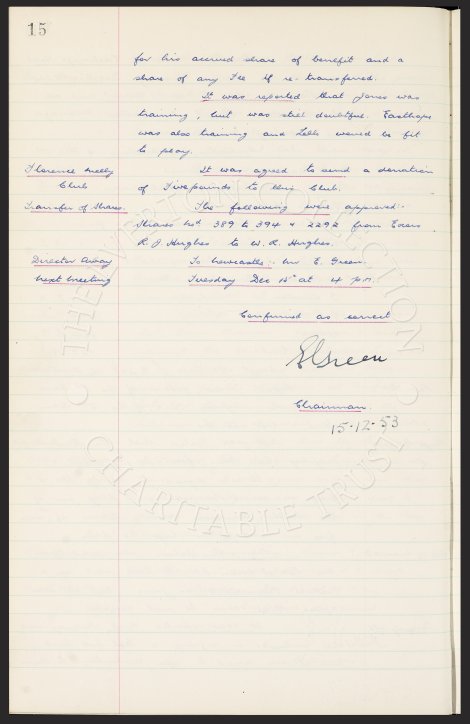 15
for his accrued share of benefit and a
share of any Fee if re-transferred.
It was reported that Jones was
training, but was still doubtful. Easthope
was also training and Lello would be fit
to play.
Florence Melly
Club
It was agreed to send a donation
of Five pounds to this Club.
Transfer of Shares.
The following were approved.
Shares Nos 389 to 394 & 2292 from Exors
R J Hughes to W. R. Hughes.
Director Away
To Newcastle:- Mr E. Green.
Next Meeting
Tuesday Dec 15th at 4 p.m.
Confirmed as correct
E Green
Chairman.
15-12-53
THE EVERTON COLLECTION
CHARITABLE TRUST